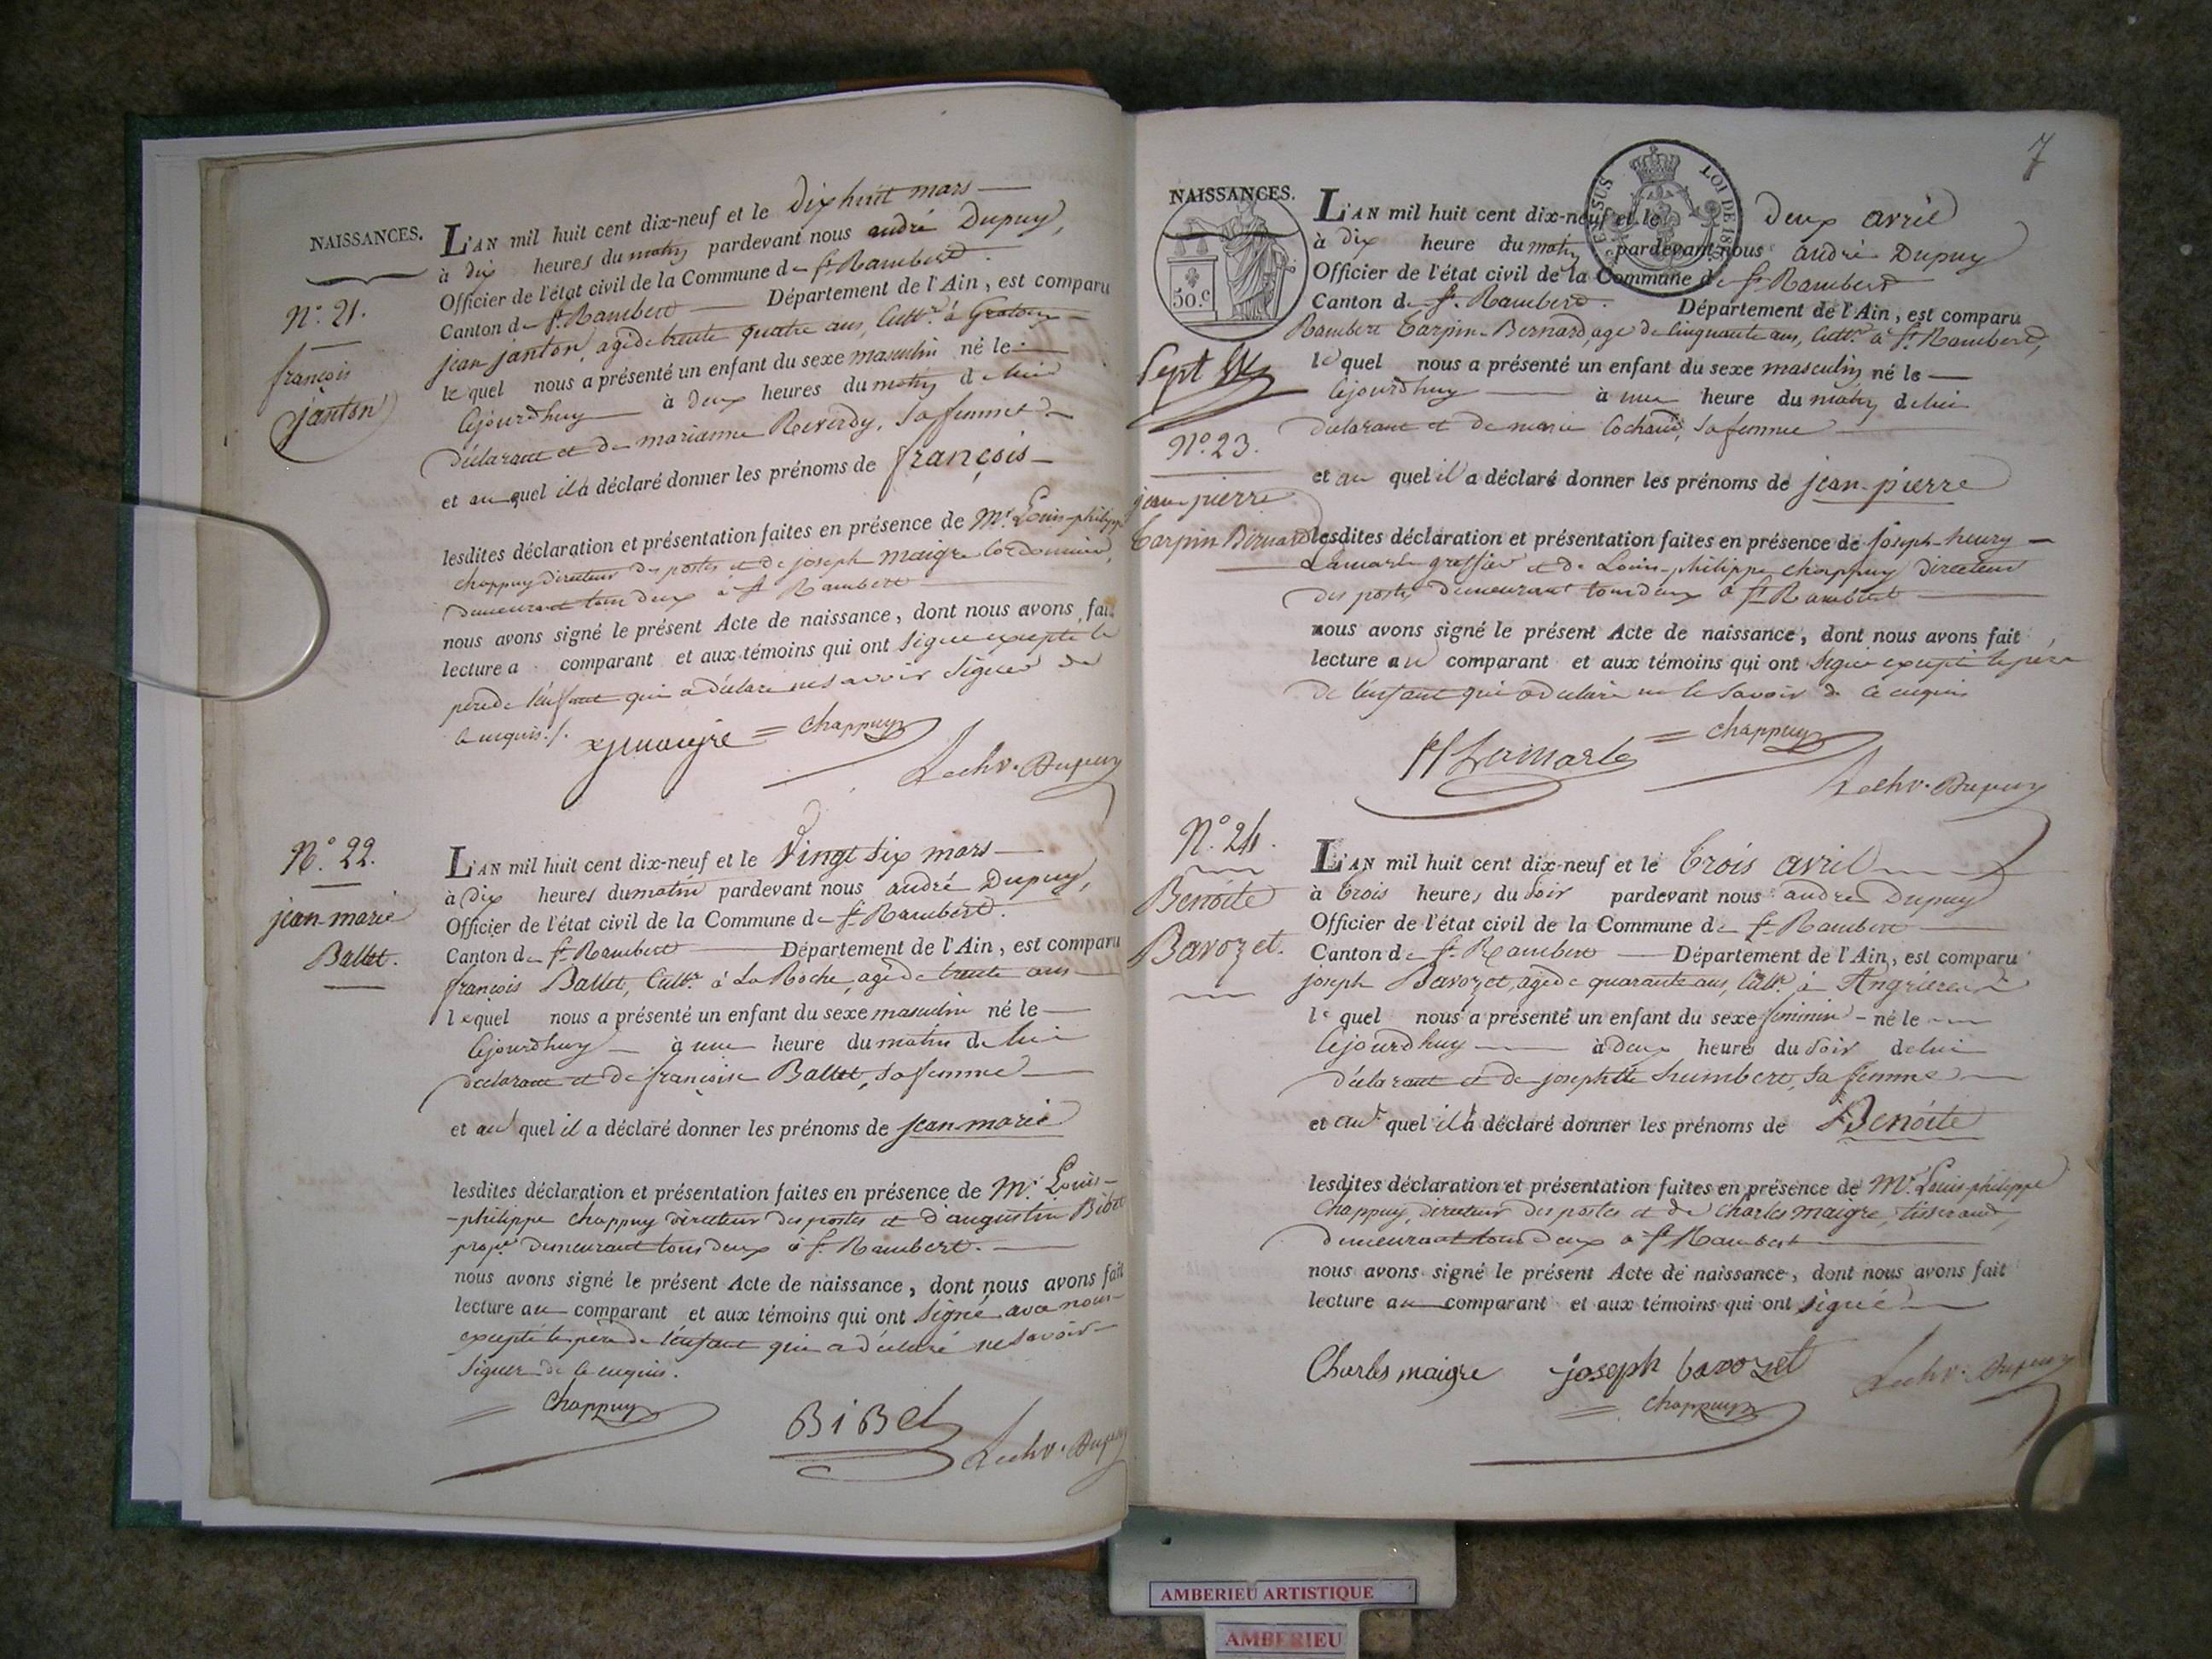 NAISSANCES.
N.° 21.
françois
janton
L'AN mil huit cent dix-neuf et le Dix huit mars
à dix heures du matin pardevant nous andré Dupuy,
Officier de l'état civil de la Commune de St Rambert.
Canton de St Rambert Département de l'Ain, est comparu
jean janton, agé de trente quatre ans, Cultr. à
lequel nous a présenté un enfant du sexe masculin né le
cejourdhuy à deux heures du matin de lui
déclarant et de marianne Reverdy, sa femme
et au quel il a déclaré donner les prénoms de françois
lesdites déclaration et présentation faites en présence de Mr. Louis-philippe
chappuy directeur des postes et de joseph maigre Cordonnier,
demeurant tous deux à St Rambert
nous avons signé le présent Acte de naissance, dont nous avons fait
lecture a comparant et aux témoins qui ont signé excepté le
père de l'enfant qui a déclaré ne savoir signer de
ce enquis./.
jmaigre = chappuy
Dupuy
N.° 22.
jean-marie
Ballet.
L'AN mil huit cent dix-neuf et le Vingt six mars
à Dix heures du matin pardevant nous andré Dupuy,
Officier de l'état civil de la Commune de St Rambert.
Canton de St Rambert Département de l'Ain, est comparu
françois Ballet, Cultr. à La Roche, agé de trente ans
lequel nous a présenté un enfant du sexe masculin né le
cejourdhuy à une heure du matin de lui
déclarant et de françoise Ballet, sa femme
et au quel il a déclaré donner les prénoms de jean marie
lesdites déclaration et présentation faites en présence de Mr. Louis-
-philippe chappuy directeur des postes et d'augustin Bibet
propre. demeurant tous deux à St Rambert.
nous avons signé le présent Acte de naissance, dont nous avons fait
lecture au comparant et aux témoins qui ont signé avec nous
excepté le père de l'enfant qui a déclaré ne savoir
signer de ce enquis.
= chappuy
BiBet
Dupuy
7
NAISSANCES.
50.c
LOI DE 18
Sept
N.° 23.
jean pierre
Tarpin Bernard
L'AN mil huit cent dix-neuf et le deux avril
à dix heure du matin pardevant nous andré Dupuy
Officier de l'état civil de la Commune de St Rambert
Canton de St. Rambert. Département de l'Ain, est comparu
Rambert Tarpin-Bernard, agé de cinquante ans, Cultr. à St. Rambert,
le quel nous a présenté un enfant du sexe masculin né le
cejourdhuy à une heure du matin de lui
déclarant et de marie Cochand, sa femme
et au quel il a déclaré donner les prénoms de jean-pierre
lesdites déclaration et présentation faites en présence de joseph-henry
Lamarle greffier et de Louis-philippe chappuy directeur
des postes demeurant tous deux à St Rambert
nous avons signé le présent Acte de naissance, dont nous avons fait
lecture au comparant et aux témoins qui ont signé excepté le père
de l'enfant qui a déclaré ne le savoir de ce enquis
Lamarle = chappuy
Dupuy
N.° 24.
Benoîte
Bavozet.
L'AN mil huit cent dix-neuf et le trois avril
à trois heures du soir pardevant nous andré Dupuy
Officier de l'état civil de la Commune de St Rambert
Canton de St. Rambert Département de l'Ain, est comparu
joseph Bavozet, agé de quarante ans, Cultr. à Angrieres
le quel nous a présenté un enfant du sexe féminin né le
cejourdhuy à deux heures du soir de lui
déclarant et de josephtte humbert, sa femme
et au quel il a déclaré donner les prénoms de Benoîte
lesdites déclaration et présentation faites en présence de Mr. Louis philippe
Chappuy, directeur des postes et de charles maigre, tisserand,
demeurant tous deux à St Rambert
nous avons signé le présent Acte de naissance, dont nous avons fait
lecture au comparant et aux témoins qui ont signé
Charles maigre joseph bavozet
Dupuy
= chappuy
AMBERIEU ARTISTIQUE
AMBERIEU